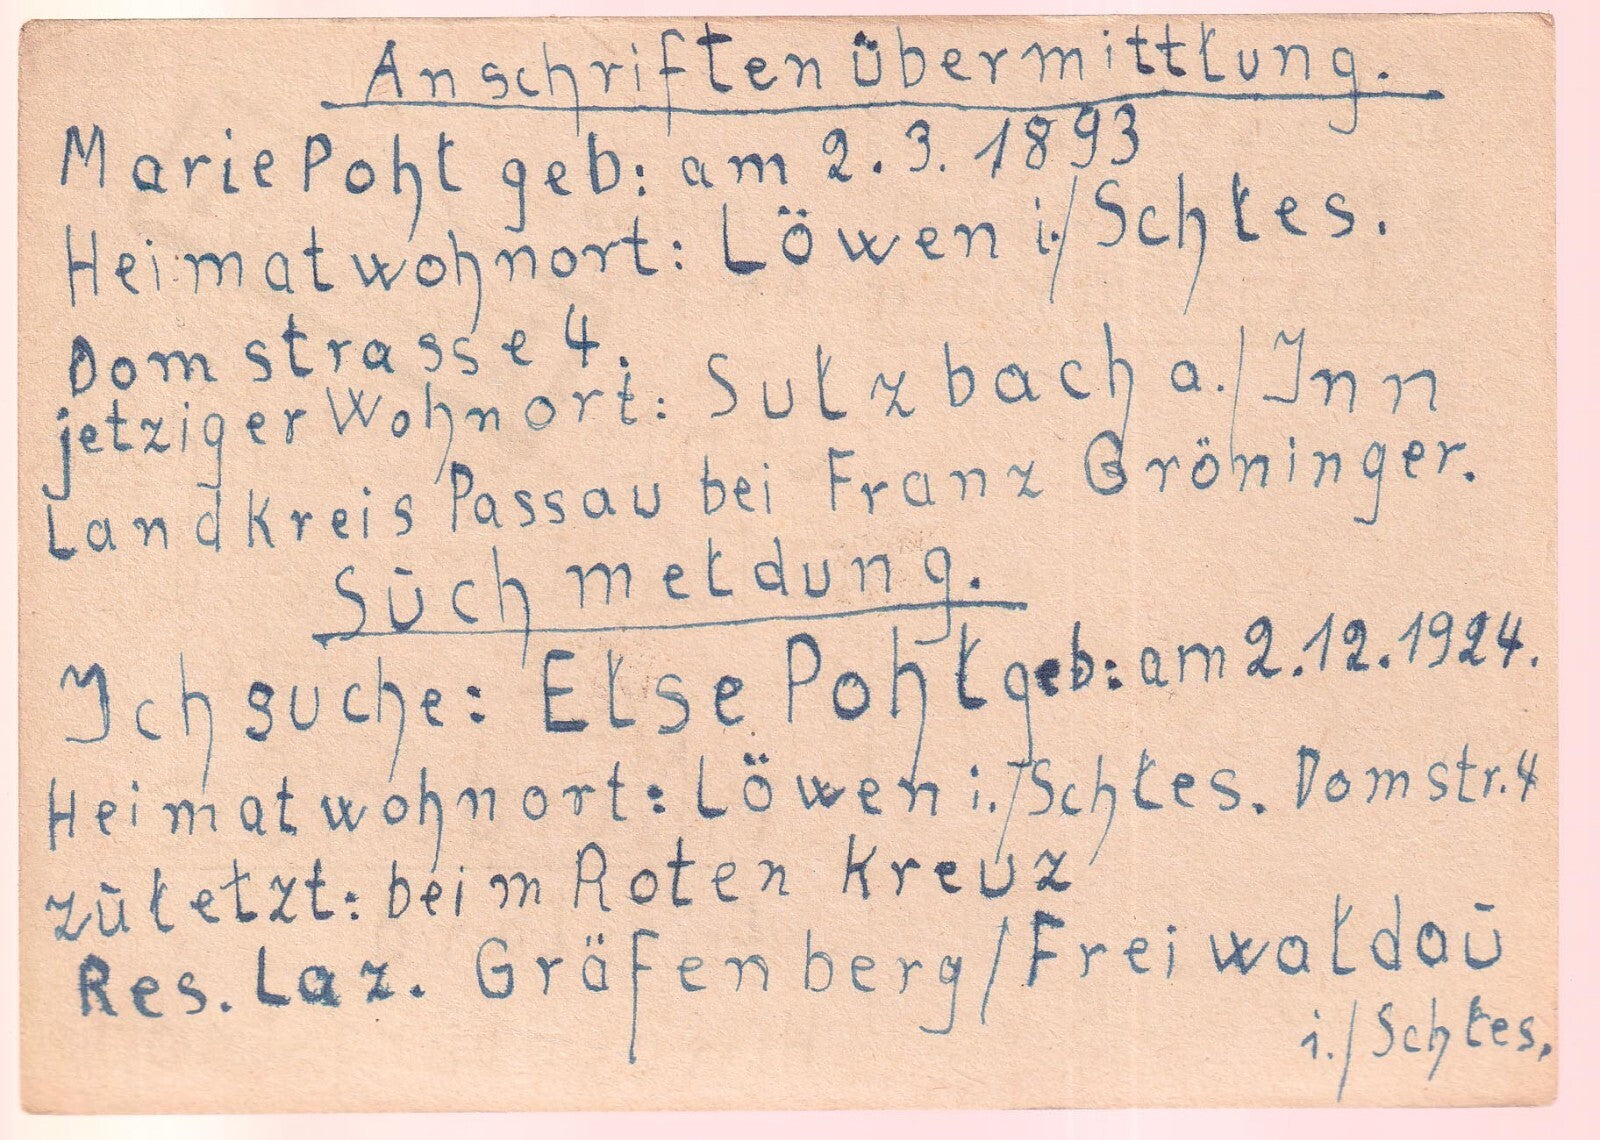 Anschriftenübermittlung.
Marie Pohl geb: am 2.3.1893
Heimatwohnort: Löwen i./Schles.
Domstrasse 4.
jetziger Wohnort: Sulzbach a./Inn
Landkreis Passau bei Franz Gröninger.
Sūchmeldung.
Ich suche: Else Pohl geb: am 2.12.1924.
Heimatwohnort: Löwen i./Schles. Domstr. 4
zūletzt: beim Roten Kreuz
Res. Laz. Gräfenberg/Freiwaldaū
i./Schles.